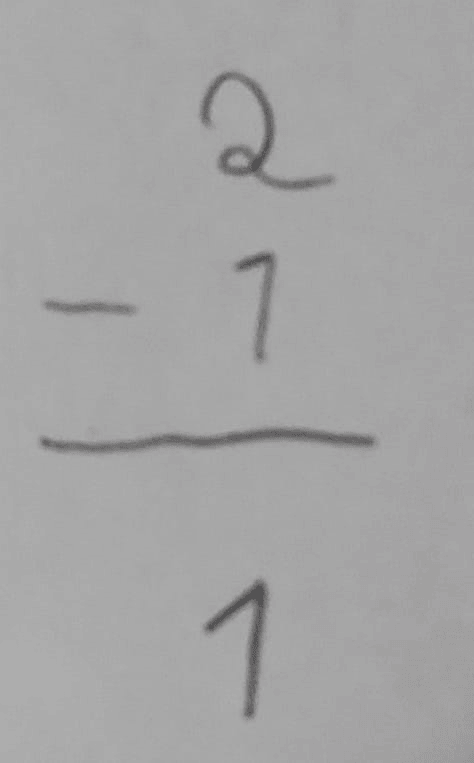 2
- 1
1